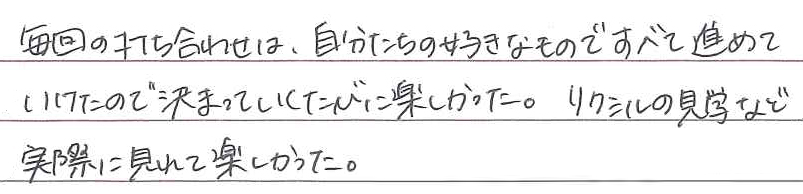 毎回の打ち合わせは、自分たちの好きなものですべて進めて
いけたので決まっていくたびに楽しかった。リクシルの見学など
実際に見れて楽しかった。